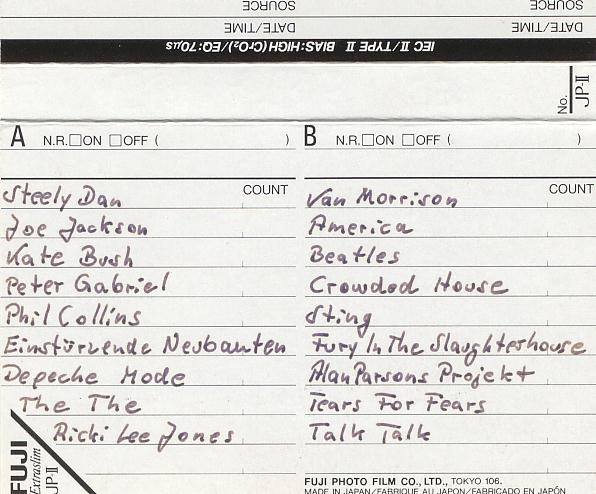 SOURCE SOURCE
DATE/TIME DATE/TIME
IEC II/TYPE II BIAS:HIGH (CrO₂)/EQ:70μs
No. JP-II
A N.R.□ON □OFF ( )
COUNT
Steely Dan
Joe Jackson
Kate Bush
Peter Gabriel
Phil Collins
Einstürzende Neubauten
Depeche Mode
The The
Ricki Lee Jones
FUJI Extraslim JP-II
B N.R.□ON □OFF ( )
COUNT
Van Morrison
America
Beatles
Crowded House
Sting
Fury In The Slaughterhouse
Alan Parsons Projekt
Tears For Fears
Talk Talk
FUJI PHOTO FILM CO., LTD., TOKYO 106.
MADE IN JAPAN/FABRIQUÉ AU JAPON/FABRICADO EN JAPÓN